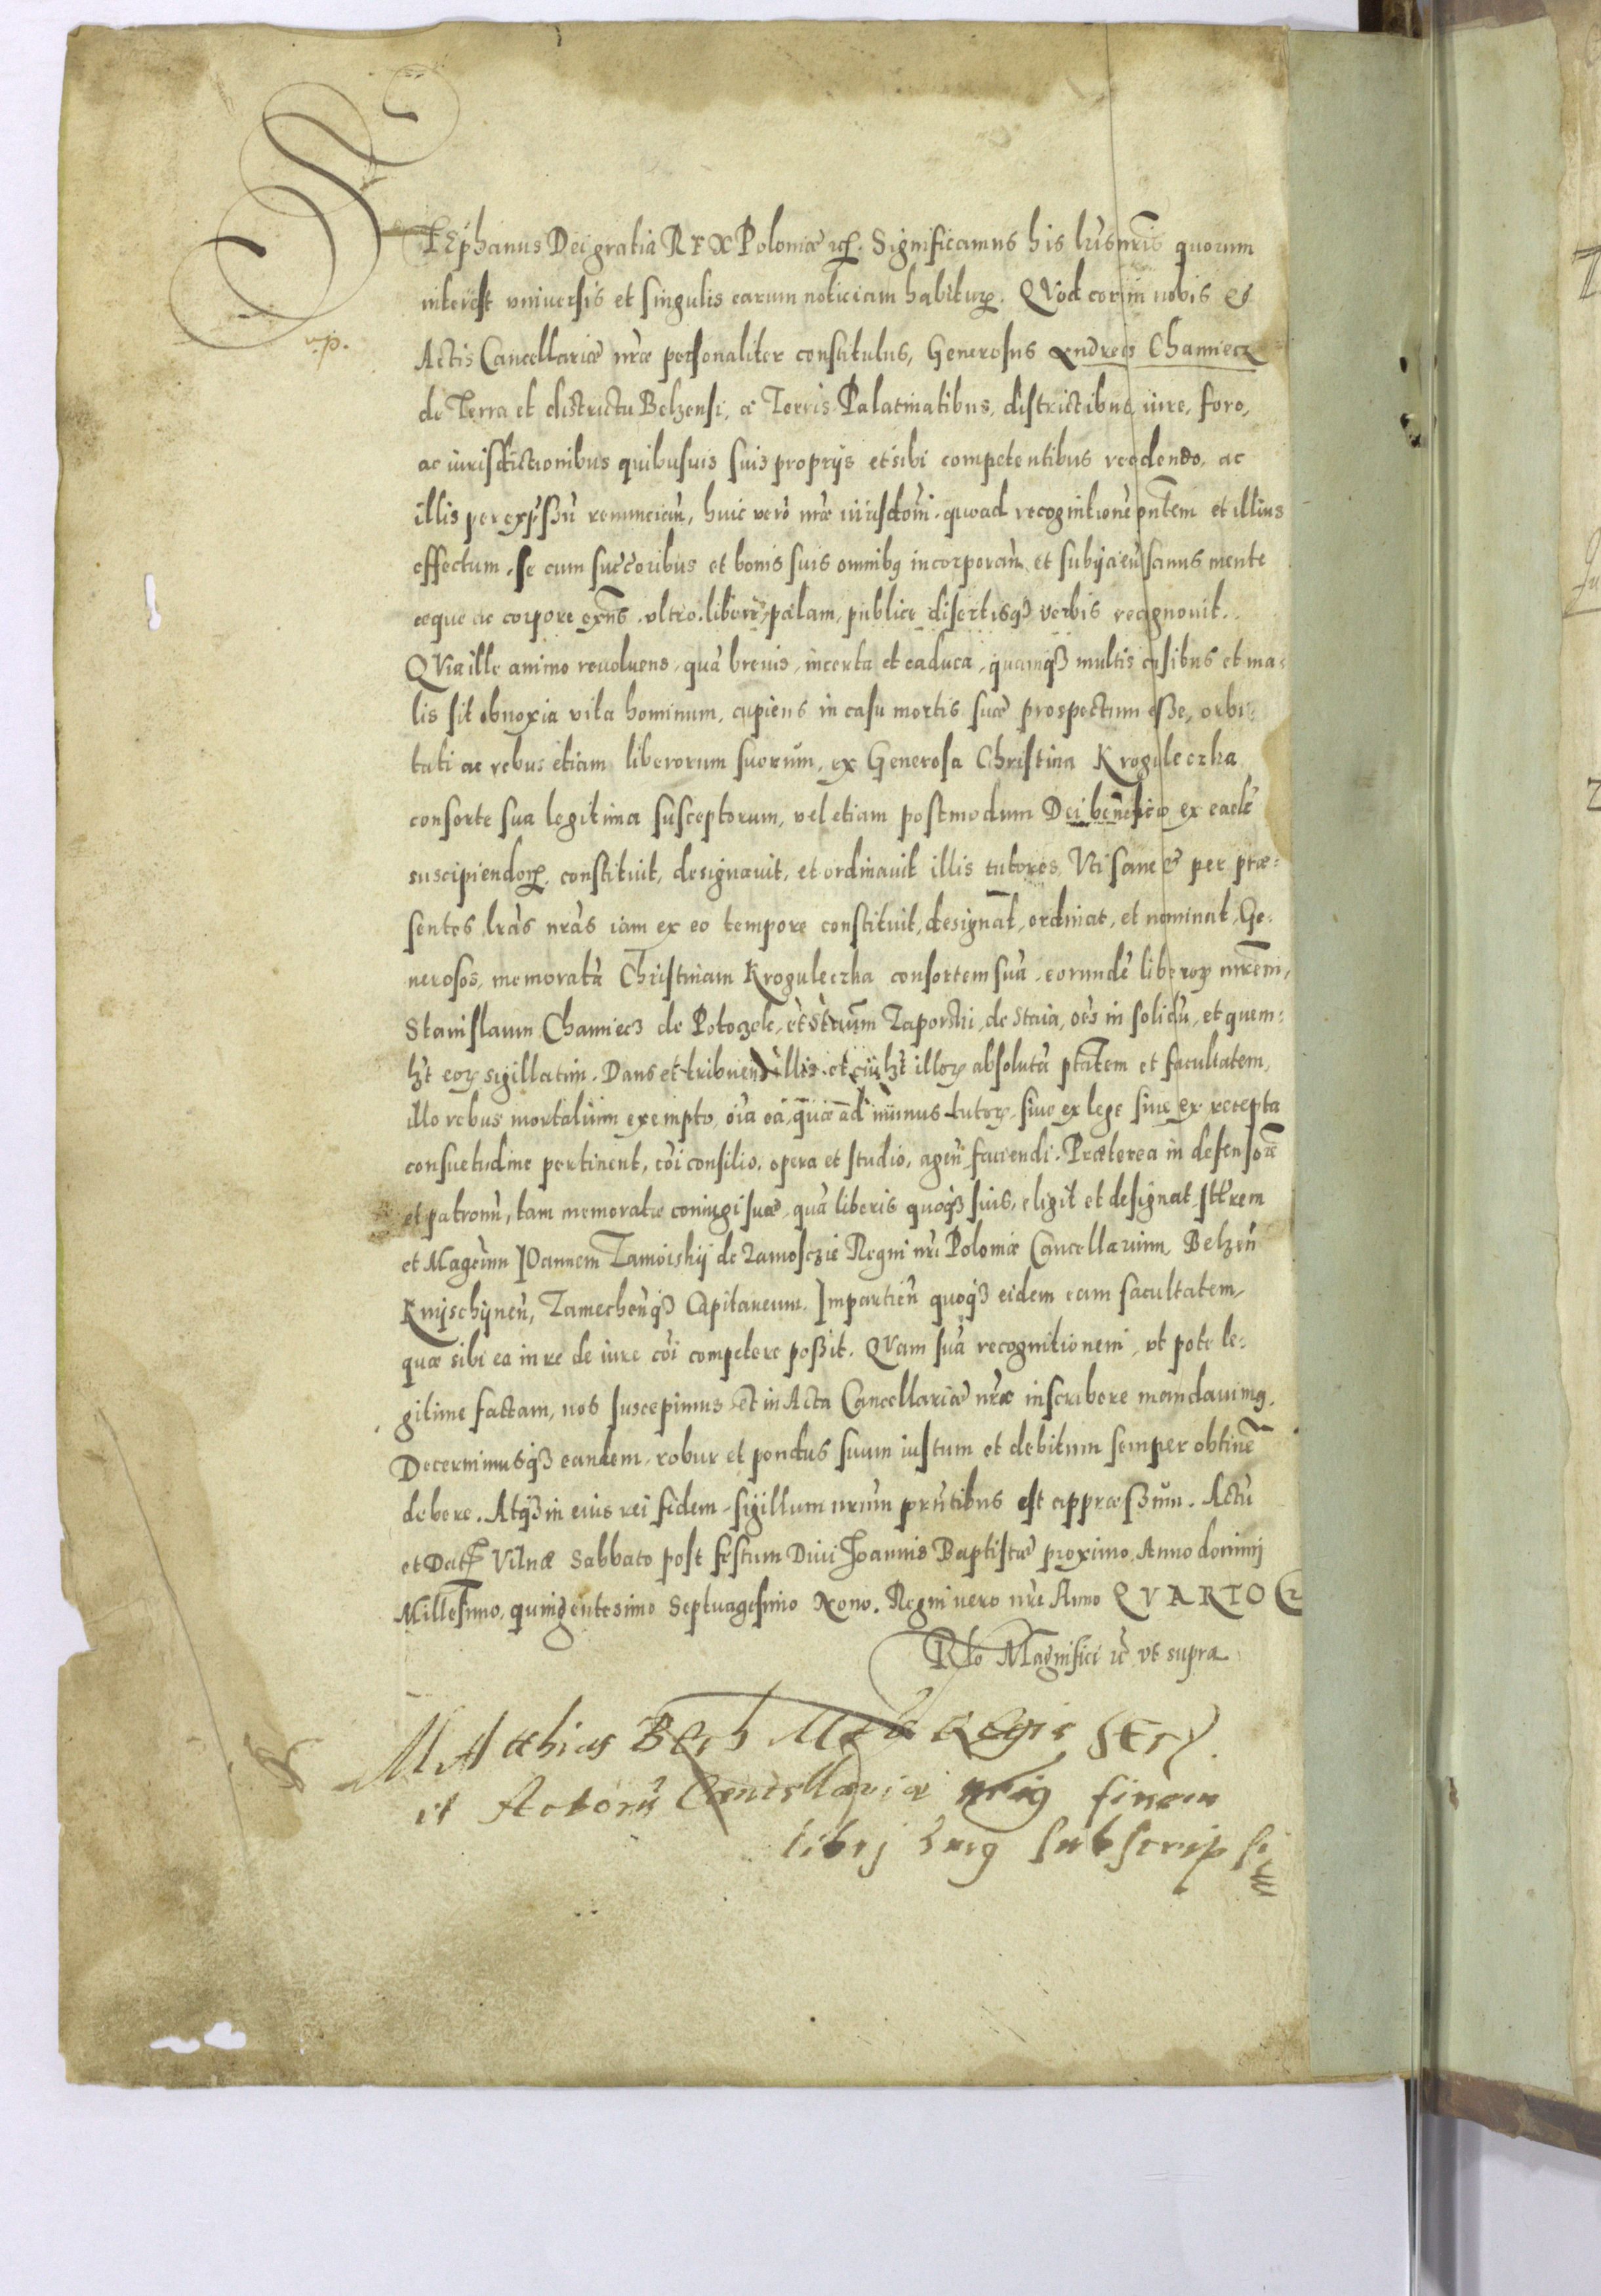 STEphanus Dei gratia REX Poloniæ etc. Significamus his lr̃is nr̃is quorum
interest vniuersis et singulis earum noticiam habituꝝ. QVod coram nobis et
v.p.
Actis Cancellariæ nr̃æ personaliter constitutus, Generosus Andreas Chamiecz
de Terra et districtu Belzensi, a Terris Palatinatibus, districtibus, iure, foro,
ac iurisdictionibus quibusuis suis proprijs et sibi competentibus recedendo, ac
illis per exp̃ssũ renunciañ, huic verò nr̃æ iurisdictioni quoad recognitionẽ pñtem et illius
effectum, se cum succ̃oribus et bonis suis omnibꝯ incorporañ et subijcieñ sanus mente
æque ac corpore exñs, vltro, liberè, palam, publice disertisqꝫ verbis recognouit.
QVia ille animo reuoluens, quã breuis, incerta et caduca, quamqꝫ multis casibus et ma-
lis sit obnoxia vita hominum, cupiens in casu mortis suæ prospectum eße, orbi-
tati ac rebus etiam liberorum suorum, ex Generosa Christina Kroguleczka
consorte sua legitima susceptorum, vel etiam postmodum Dei beneficio ex eadẽ
suscipiendoꝝ, constituit, designauit, et ordinauit illis tutores, Vti sane et per præ-
sentes lr̃as nr̃as iam ex eo tempore constituit, designat, ordinat, et nominat, Ge-
nerosos, memoratã Christinam Kroguleczka consortem suã, eorundẽ liberoꝝ mr̃em,
Stanislaum Chamiecz de Potoczek, et Stãum Zaporski, de Staia, oẽs in solidũ, et quem-
lꝫt eoꝝ sigillatim. Dans et tribuens illis et cuilꝫt illoꝝ absolutã ptãtem et facultatem,
illo rebus mortalium exempto, oĩa eã, quæ ad munus tutoꝝ, siue ex lege siue ex recepta
consuetudine pertinent, cõi consilio, opera et studio, ageñ faciendi. Præterea in defensorẽ
et patronũ, tam memoratæ coniugi suæ, quã liberis quoqꝫ suis, eligit et designat Illr̃em
et Magcũm IOannem Zamoiskij de Zamosczie Regni nr̃i Poloniæ Cancellarium, Belzeñ
Knijschijneñ, Zamecheñqꝫ Capitaneum. Impartieñ quoqꝫ eidem eam facultatem,
quæ sibi ea in re de iure cõi competere poßit. QVam suã recognitionem, vt pote le-
gitime factam, nos suscepimus et in Acta Cancellariæ nr̃æ inscribere mandauimꝯ.
Decernimusqꝫ eandem, robur et pondus suum iustum et debitum semper obtinẽ
debere. Atqꝫ in eius rei fidem, sigillum nr̃um pr̃ntibus est appræßum. Actũ
et Datꝝ Vilnæ Sabbato post festum Diui Joannis Baptistæ proximo, Anno dominj
Millesimo, quingentesimo Septuagesimo Nono. Regni vero nr̃i Anno QVARTO
Rlo Magnifici etc̃ vt supra
MAtthias Regis
et Actorũ Cancellariæ finem
librj huiꝯ subscripsi